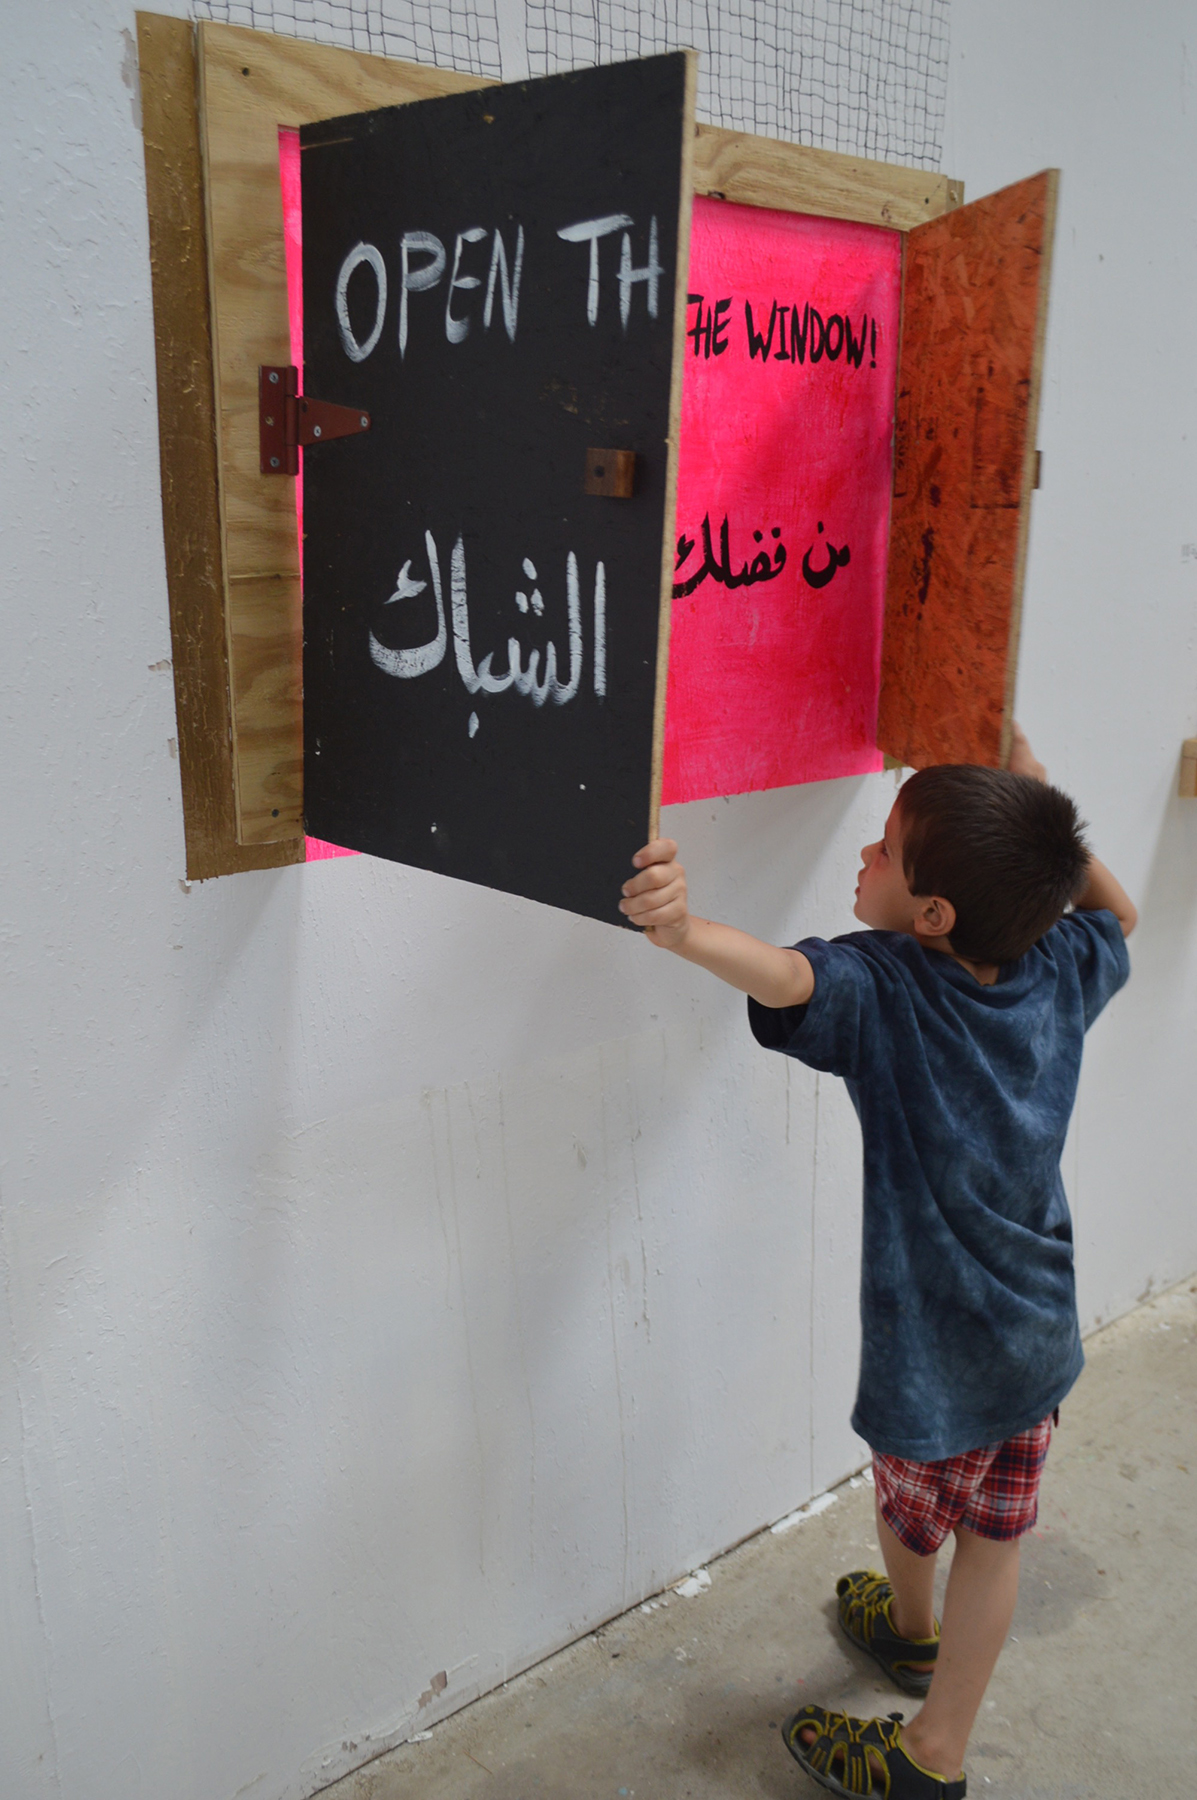 OPEN TH
الشباك
THE WINDOW!
من فضلك